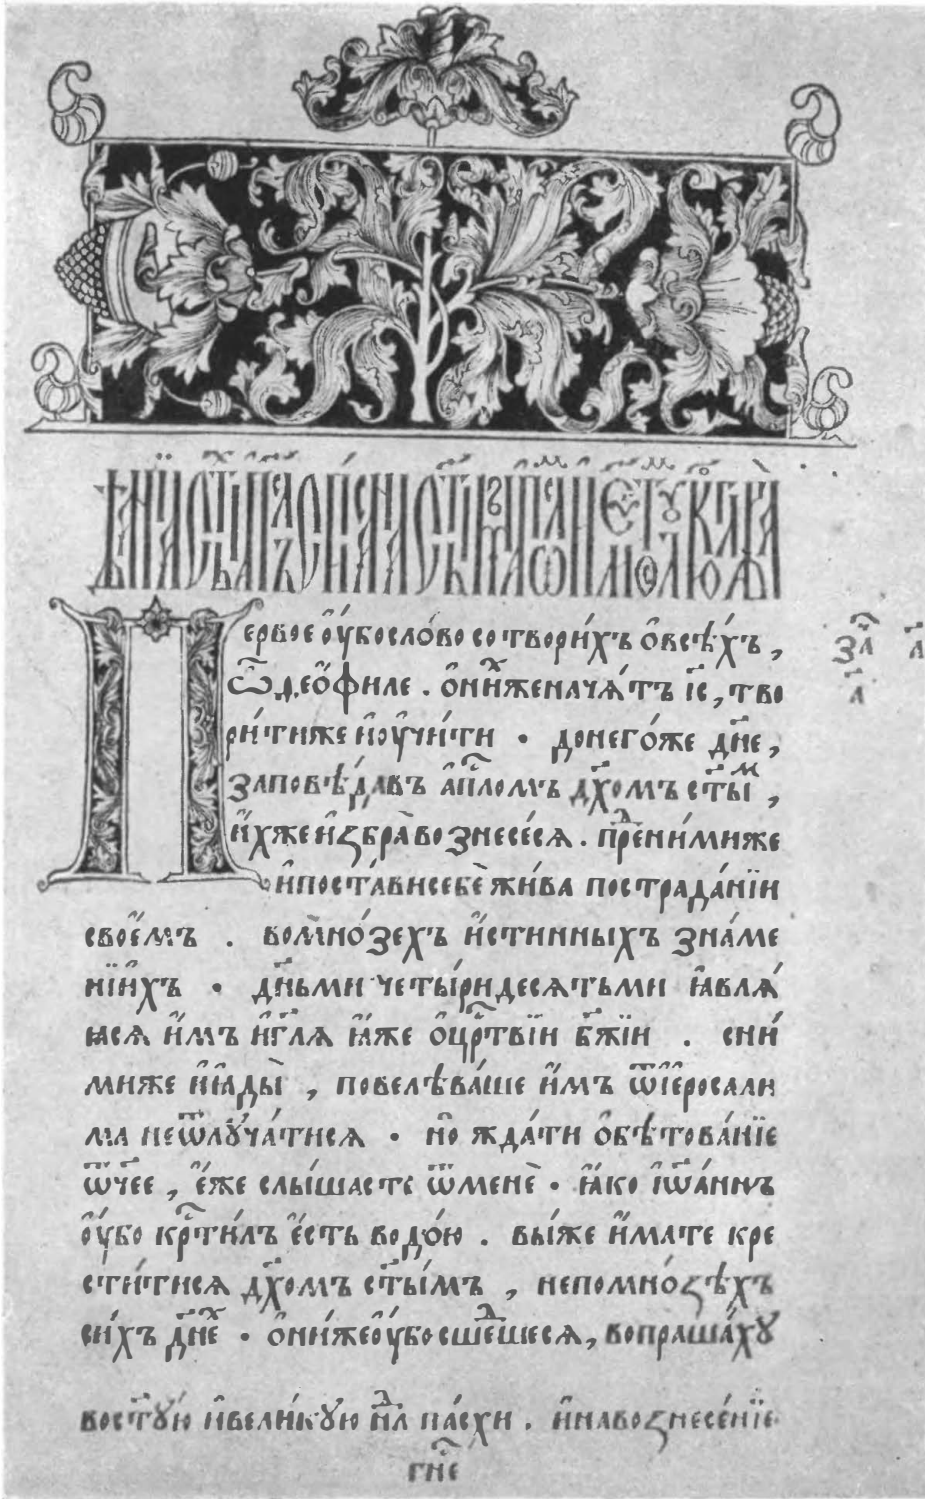 ервое оу҆́бо сло́во сотвори́хъ ѻ҆всѣ́хъ,
ѽ, ѳео҆́филе . ѻ҆ни́хже нача́тъ і҆с҃, тво
ри́тиже и҆ оу҆чи́ти · донего́же дн҃е,
заповѣ́давъ а҆п҃ломъ дх҃омъ ст҃ы́м,
и҆́хже и҆збра̀ вознесе́ся . пре́дни́миже
и҆ поста́ви себѐ жи́ва пострада́нїи
свое҆́мъ . вомно́зехъ и҆́стинныхъ зна́ме
нїи҆хъ · дн҃ьми четы́ридесятьми ꙗ҆вля́
ꙗся и҆́мъ и҆ гл҃я ꙗ҆́же ѻ҆ цр҃твїи бж҃їи . сни́
миже и҆ ꙗ҆ды̀ , повелѣва́ше и҆́мъ ѿ і҆еросали
ма не ѿлꙋча́тися · но жда́ти ѻ҆бѣтова́нїе
ѿч҃ее , е҆́же слы́шасте ѿ менѐ · ꙗ҆́ко і҆ѡа́ннъ
оу҆́бо кр҃ти́лъ е҆́сть водо́ю . вы́же и҆́мате кре
сти́тися дх҃омъ ст҃ы́мъ , непомно́зѣхъ
си́хъ дн҃ехъ · ѻ҆ни́же оу҆́бо сшедшеся, вопраша́хꙋ
вост҃ꙋ́ю и҆ вели́кꙋю нд҃лю па́схи . и҆ на вознесе́нїе
гн҃е
за҃ л҃
л҃